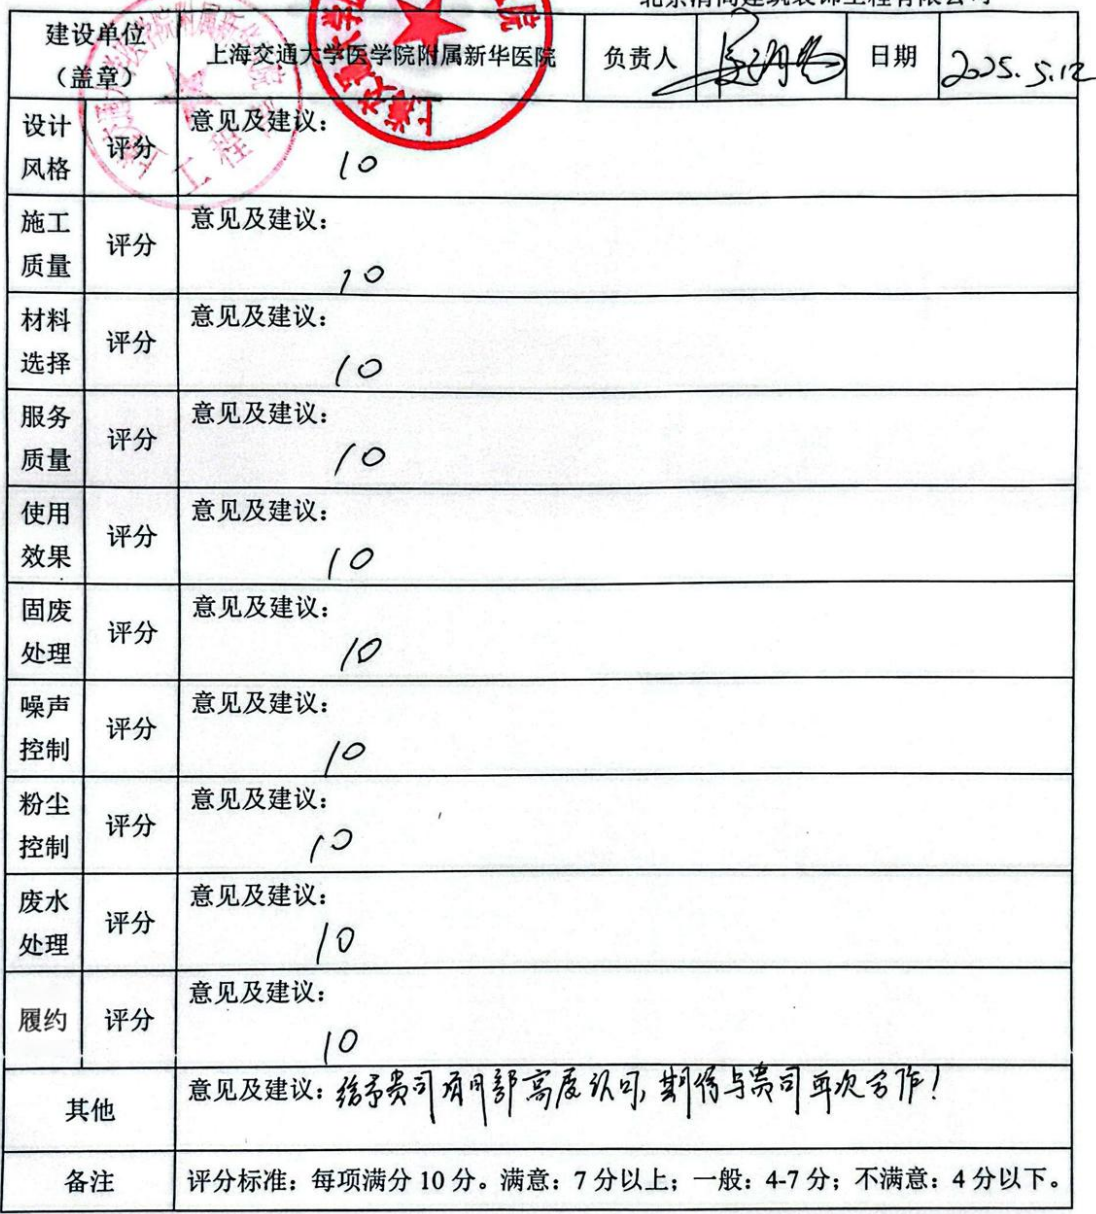 建设单位
（盖章）
上海交通大学医学院附属新华医院
负责人
日期
2025.5.12
设计
风格
评分
意见及建议：
10
施工
质量
评分
意见及建议：
10
材料
选择
评分
意见及建议：
10
服务
质量
评分
意见及建议：
10
使用
效果
评分
意见及建议：
10
固废
处理
评分
意见及建议：
10
噪声
控制
评分
意见及建议：
10
粉尘
控制
评分
意见及建议：
10
废水
处理
评分
意见及建议：
10
履约
评分
意见及建议：
10
其他
意见及建议：给予贵司 高度认可，期待与贵司再次合作！
备注
评分标准：每项满分 10 分。满意：7 分以上；一般：4-7 分；不满意：4 分以下。